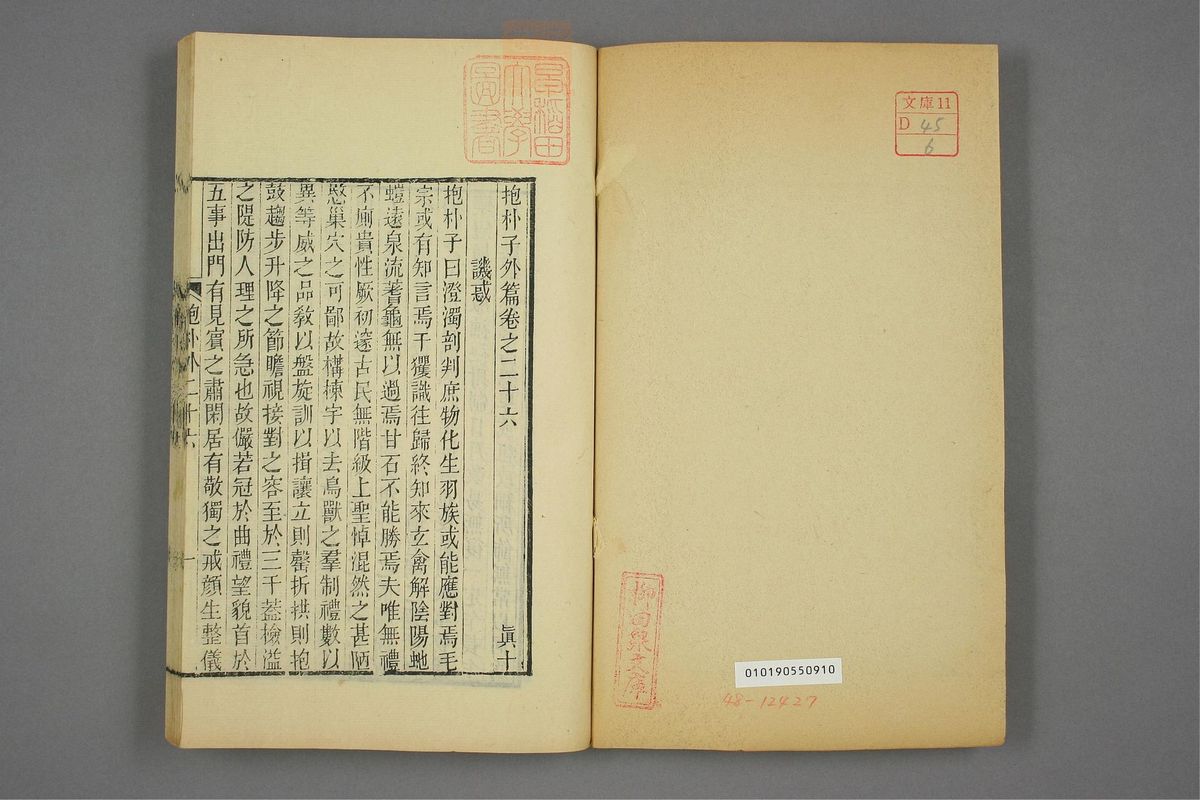 文庫11
D 45
6
柳田泉文庫
010190550910
48-12427
早稲田
大學
圖書
抱朴子外篇卷之二十六 眞十
譏惑
抱朴子曰澄濁剖判庶物化生羽族或能應對焉毛
宗或有知言焉于玃識往歸終知來玄禽解陰陽虵
螘遠泉流蓍龜無以過焉甘石不能勝焉夫唯無禮
不廁貴性厥初邃古民無階級上聖悼混然之甚陋
愍巢穴之可鄙故構棟宇以去鳥獸之羣制禮數以
異等威之品敎以盤旋訓以揖讓立則磬折拱則抱
鼓趨步升降之節瞻視接對之容至於三千蓋檢溢
之隄防人理之所急也故儼若冠於曲禮望貌首於
五事出門有見賓之肅閑居有敬獨之戒顏生整儀
抱朴外二十六 一